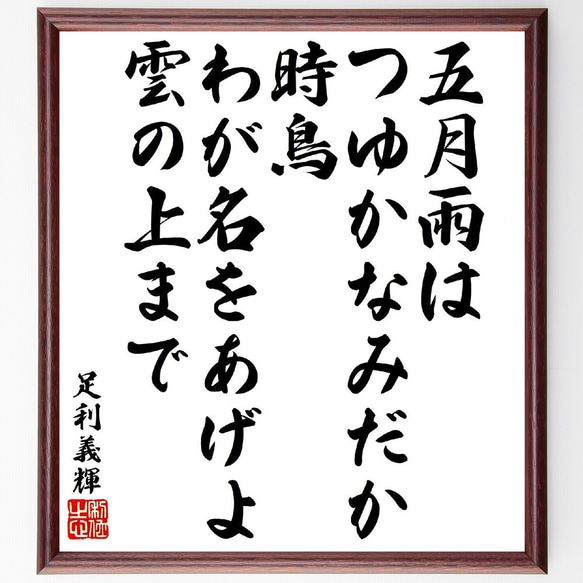 五月雨は
つゆかなみだか
時鳥
わが名をあげよ
雲の上まで
足利義輝